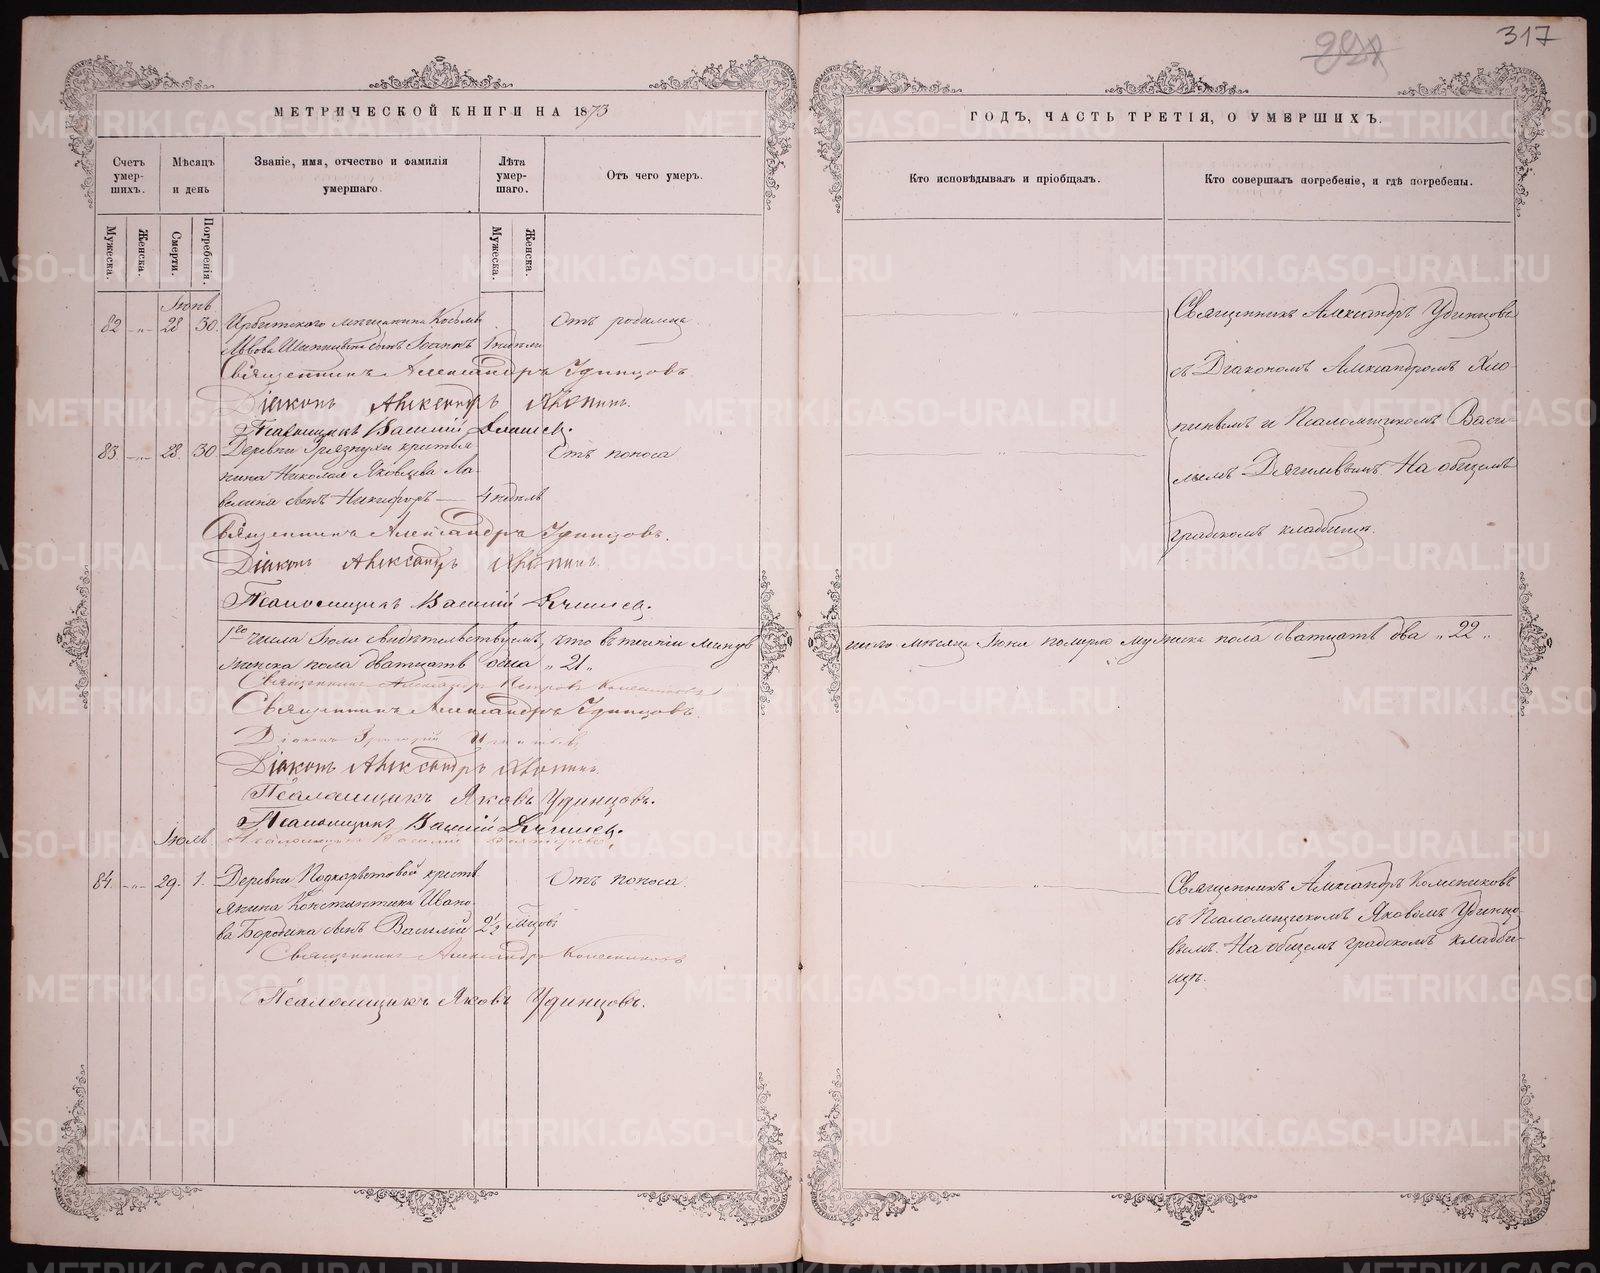 317
МЕТРИЧЕСКОЙ КНИГИ НА 1873
ГОДЪ, ЧАСТЬ ТРЕТІЯ, О УМЕРШИХЪ.
Счетъ умер-
шихъ.
Мѣсяцъ
и день
Званіе, имя, отчество и фамилія
умершаго.
Лѣта
умер-
шаго.
Отъ чего умеръ.
Кто исповѣдывалъ и пріобщалъ.
Кто совершалъ погребеніе, и гдѣ погребены.
Мужеска.
Женска.
Смерти.
Погребенія.
Мужеска.
Женска.
Іюнь
82 -„- 28 30 Ирбитскаго мѣщанина Козьмы
Львова сынъ Іоаннъ 1 недѣли
Отъ родимца
Священникъ Александръ Удинцовъ.
Діаконъ Александръ Хіонинъ.
Псаломщикъ Василій
83. -„- 28. 30 Деревни Грязнухи крестья-
нина Николая Яковлева
сынъ Никифоръ — 4 недѣль
Отъ поноса
Священникъ Александръ Удинцовъ.
Діаконъ Александръ Хіонинъ.
Псаломщикъ Василій
Священникъ Александръ Удинцовъ
съ Діакономъ Александромъ Хіо-
нинымъ и Псаломщикомъ Васи-
льемъ На общемъ
градскомъ кладбищѣ.
1го числа Іюля свидѣтельствуемъ, что въ теченіи минув
шаго мѣсяца Іюня померло мужеска пола двадцать два „22„
женска пола двадцать одна „21„
Священникъ Александръ Петровъ Колесниковъ
Священникъ Александръ Удинцовъ.
Діаконъ Григорій
Діаконъ Александръ Хіонинъ.
Псаломщикъ Яковъ Удинцовъ.
Псаломщикъ Василій
Іюль
Псаломщикъ Василій
84. -„- 29. 1. Деревни крестья-
янина Константина Ивано-
ва Бородина сынъ Василій 2½ мѣсяцовъ
Отъ поноса.
Священникъ Александръ Колесниковъ
Псаломщикъ Яковъ Удинцовъ.
Священникъ Александръ Колесниковъ
съ Псаломщикомъ Яковомъ Удинцо-
вымъ. На общемъ градскомъ кладби-
щѣ.
METRIKI.GASO-URAL.RU